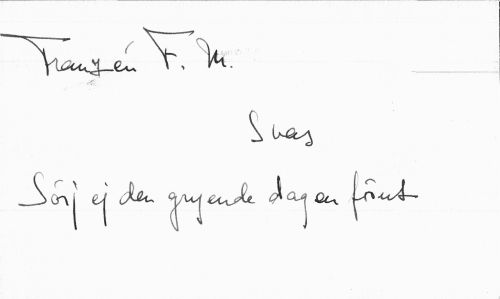 Franzén F. M.
Svas
Sörj ej den gryende dagen förut